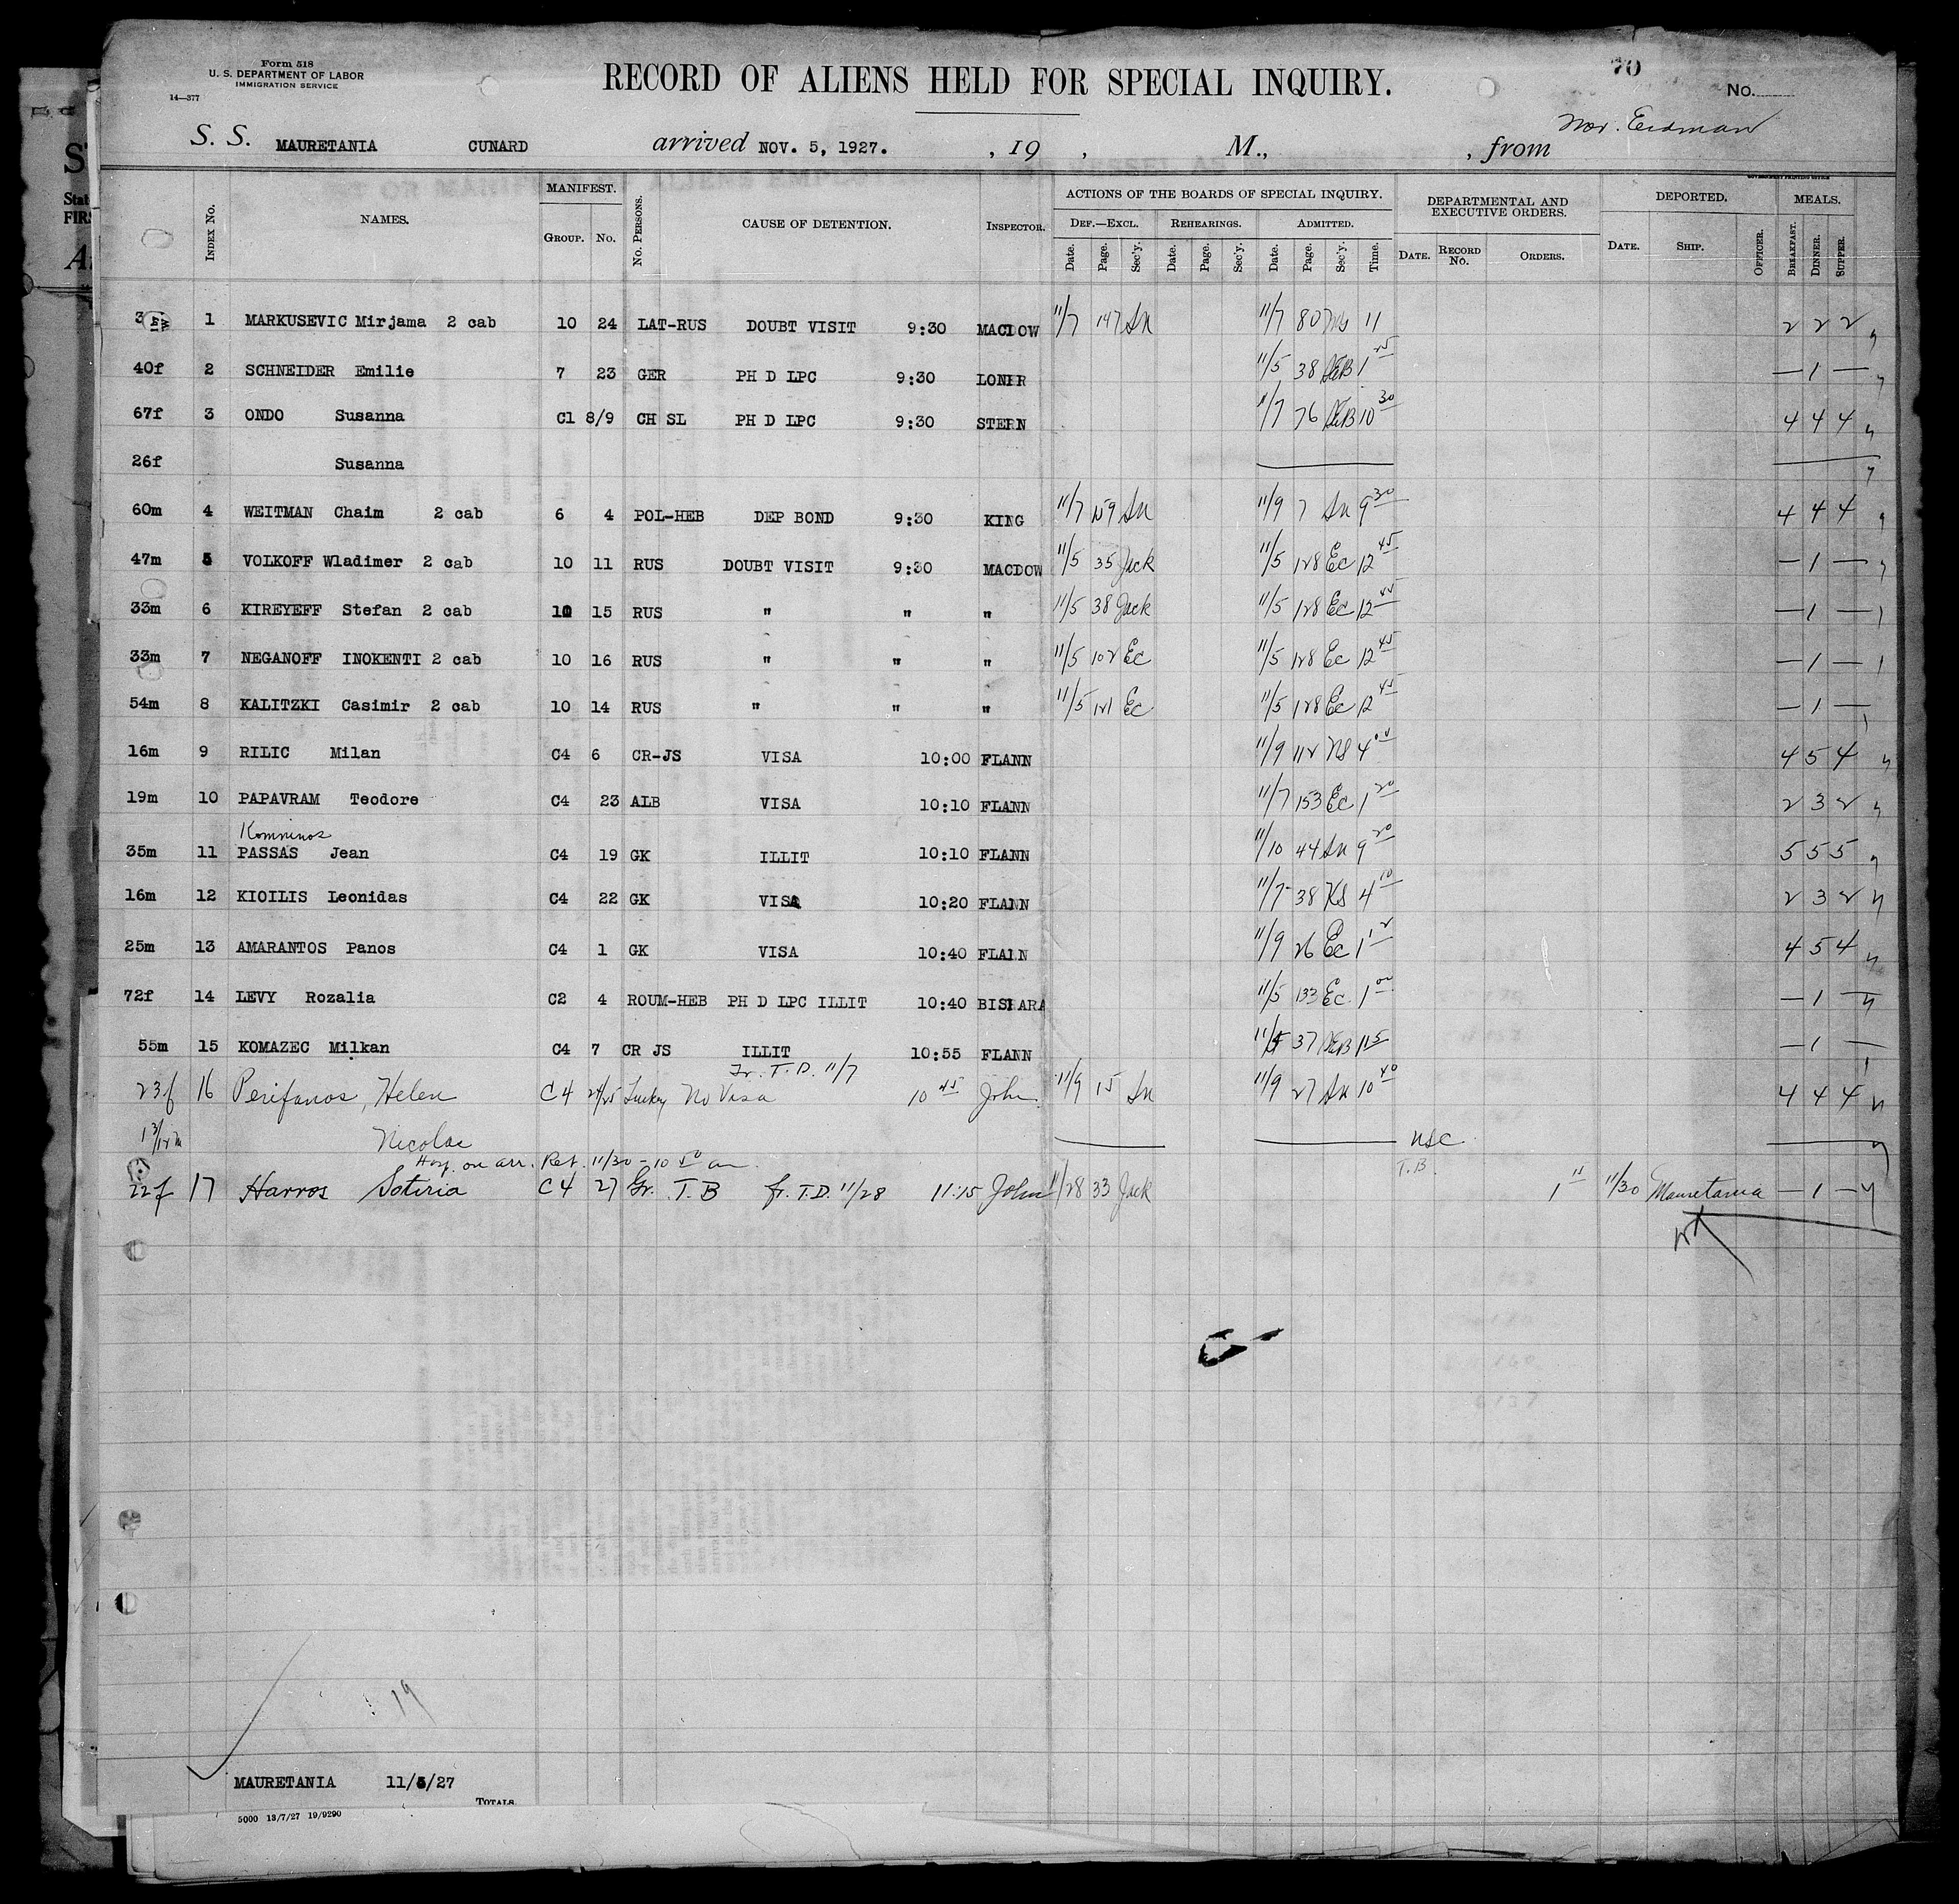 Form 518
U. S. DEPARTMENT OF LABOR
IMMIGRATION SERVICE
14—377
RECORD OF ALIENS HELD FOR SPECIAL INQUIRY.
70
No.
S. S. MAURETANIA CUNARD arrived NOV. 5, 1927. , 19 , M., , from Nov. Erdman
GOVERNMENT PRINTING OFFICE
INDEX NO. NAMES. MANIFEST. GROUP. NO. NO. PERSONS. CAUSE OF DETENTION. INSPECTOR. ACTIONS OF THE BOARDS OF SPECIAL INQUIRY. DEF.—EXCL. REHEARINGS. ADMITTED. DEPARTMENTAL AND EXECUTIVE ORDERS. DEPORTED. MEALS.
Date. Page. Sec'y. Date. Page. Sec'y. Date. Page. Sec'y. Time. DATE. RECORD NO. ORDERS. DATE. SHIP. OFFICER. BREAKFAST. DINNER. SUPPER.
1 MARKUSEVIC Mirjama 2 cab 10 24 LAT-RUS DOUBT VISIT 9:30 MACDOW 11/7 147 Sn 11/7 80 11 2 2 2
40f 2 SCHNEIDER Emilie 7 23 GER PH D LPC 9:30 11/5 38 DEB 1 25 — 1 —
67f 3 ONDO Susanna C1 8/9 CH SL PH D LPC 9:30 STERN 11/7 76 DEB 10 30 4 4 4
26f Susanna
60m 4 WEITMAN Chaim 2 cab 6 4 POL-HEB DEP BOND 9:30 KING 11/7 159 Sn 11/9 7 Sn 9 30 4 4 4
47m 5 VOLKOFF Wladimer 2 cab 10 11 RUS DOUBT VISIT 9:30 MACDOW 11/5 35 Jack 11/5 128 Ec 12 45 — 1 —
33m 6 KIREYEFF Stefan 2 cab 10 15 RUS " " " 11/5 38 Jack 11/5 128 Ec 12 45 — 1 —
33m 7 NEGANOFF INOKENTI 2 cab 10 16 RUS " " " 11/5 102 Ec 11/5 128 Ec 12 45 — 1 —
54m 8 KALITZKI Casimir 2 cab 10 14 RUS " " " 11/5 121 Ec 11/5 128 Ec 12 45 — 1 —
16m 9 RILIC Milan C4 6 CR-JS VISA 10:00 FLANN 11/9 112 NS 4 00 4 5 4
19m 10 PAPAVRAM Teodore C4 23 ALB VISA 10:10 FLANN 11/7 153 Ec 1 20 2 3 2
Komninos
35m 11 PASSAS Jean C4 19 GK ILLIT 10:10 FLANN 11/10 44 Sn 9 20 5 5 5
16m 12 KIOILIS Leonidas C4 22 GK VISA 10:20 FLANN 11/7 38 KS 4 10 2 3 2
25m 13 AMARANTOS Panos C4 1 GK VISA 10:40 FLANN 11/9 26 Ec 1 12 4 5 4
72f 14 LEVY Rozalia C2 4 ROUM-HEB PH D LPC ILLIT 10:40 BISHARA 11/5 133 Ec. 1 00 — 1 —
55m 15 KOMAZEC Milkan C4 7 CR JS ILLIT 10:55 FLANN 11/5 37 DEB 1 15 — 1 —
fr. T.D. 11/7
23f 16 Perifanos, Helen C4 24/25 Turkey No Visa 10 45 John 11/9 15 Sn 11/9 27 Sn 10 40 4 4 4
1 3/12 m Nicolas USC
Hosp. on arr. Ret. 11/30 - 10 50 am T.B.
22f 17 Harros Sotiria C4 27 Gr. T.B fr. T.D. 11/28 11:15 John 11/28 33 Jack 1 11/30 Mauretania — 1 —
19
MAURETANIA 11/5/27
TOTALS.
5000 13/7/27 19/9290